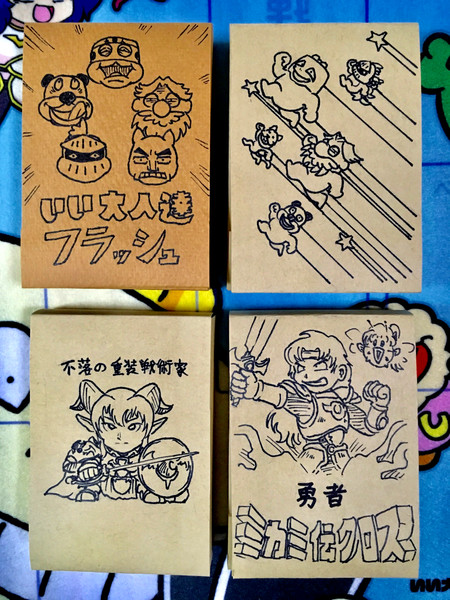 いい大人達
フラッシュ
不落の重装戦術家
勇者
ミカミ伝クロス